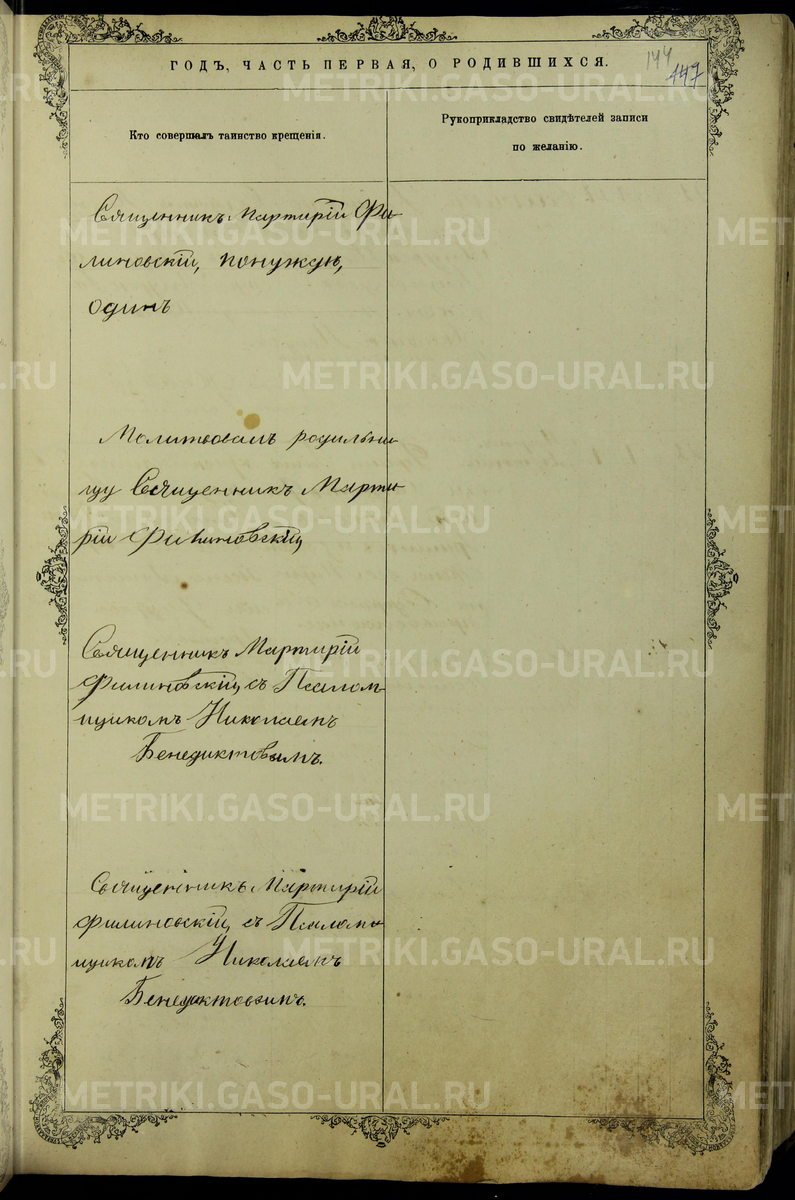 ГОДЪ, ЧАСТЬ ПЕРВАЯ, О РОДИВШИХСЯ.
144
147
Кто совершалъ таинство крещенія.
Рукоприкладство свидѣтелей записи
по желанію.
Священникъ Мартирій Фи-
линовскій,
одинъ
Молитвовалъ родильни-
цу Священникъ Марти-
рій Филиновскій,
Священникъ Мартирій
Филиновскій, съ Псалом-
щикомъ Николаемъ
Бенедиктовымъ.
Священникъ Мартирій
Филиновскій, съ Псалом-
щикомъ Николаемъ
Бенедиктовымъ.
METRIKI.GASO-URAL.RU